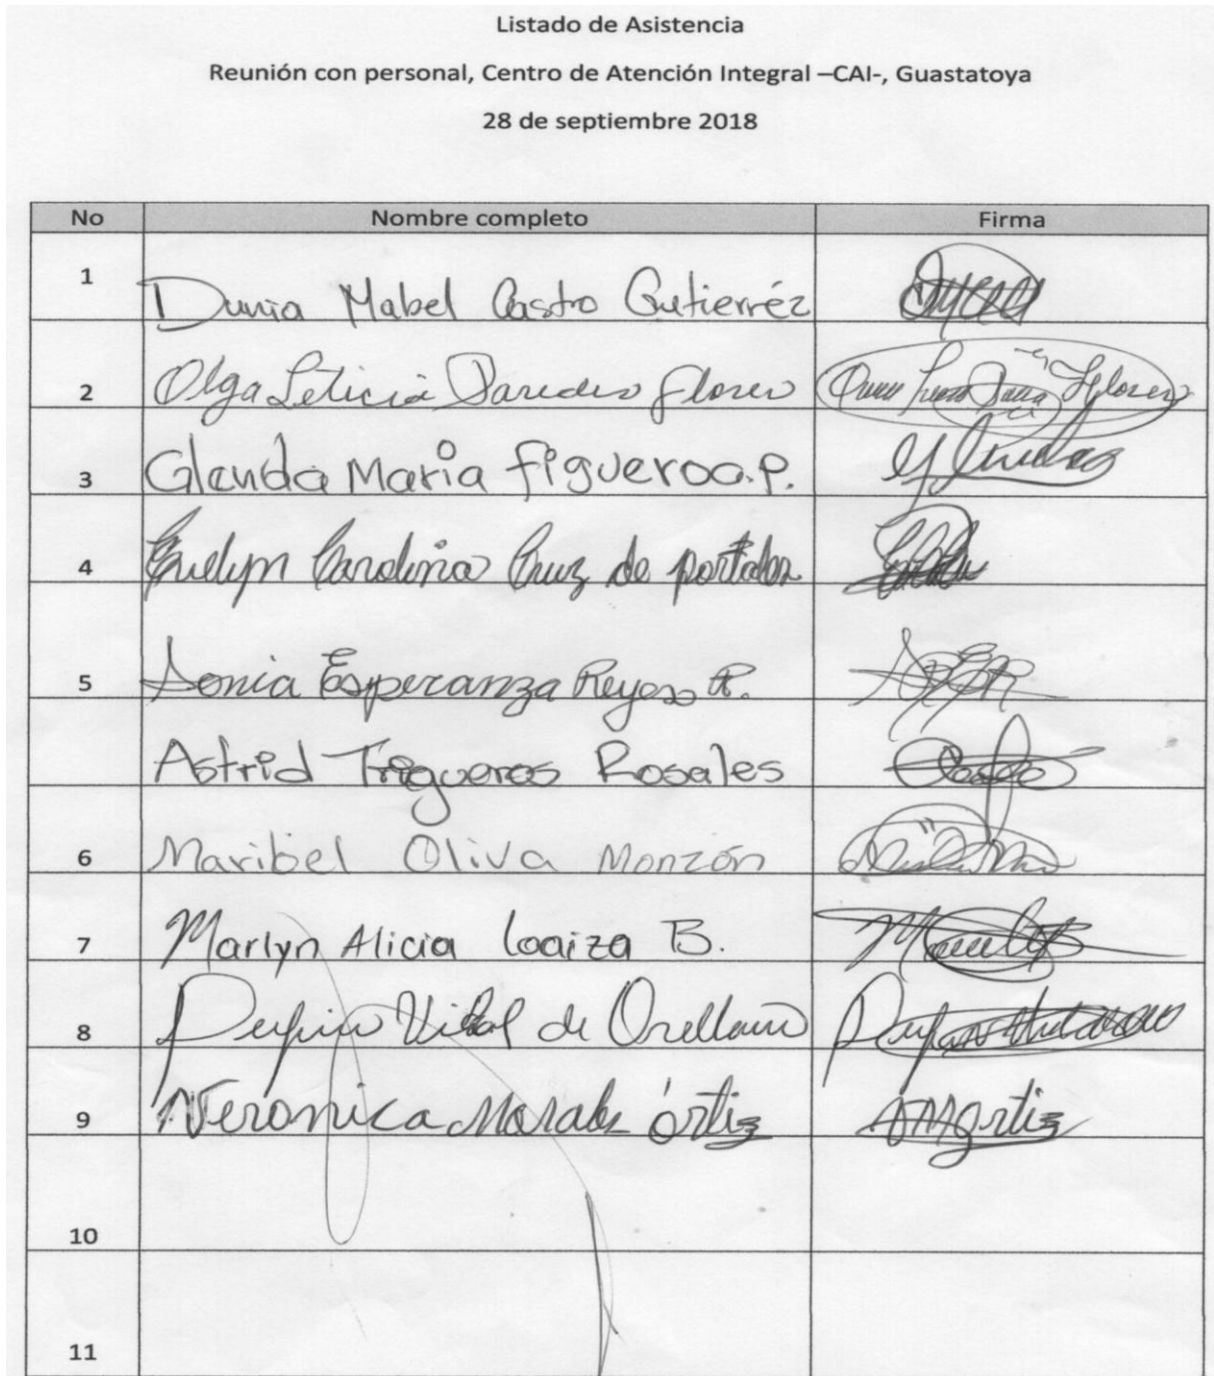 Listado de Asistencia
Reunión con personal, Centro de Atención Integral –CAI-, Guastatoya
28 de septiembre 2018
No Nombre completo Firma
1 Dunia Mabel Castro Gutierréz
2 Olga Leticia Paredes Flores
3 Glenda Maria Figueroa.P.
4 Evelyn Carolina Cruz de portales
5 Sonia Esperanza Reyes R.
Astrid Trigueros Rosales
6 Maribel Oliva Monzón
7 Marlyn Alicia Loaiza B.
8 Vidal de Orellana
9 Veronica Morales órtiz
10
11